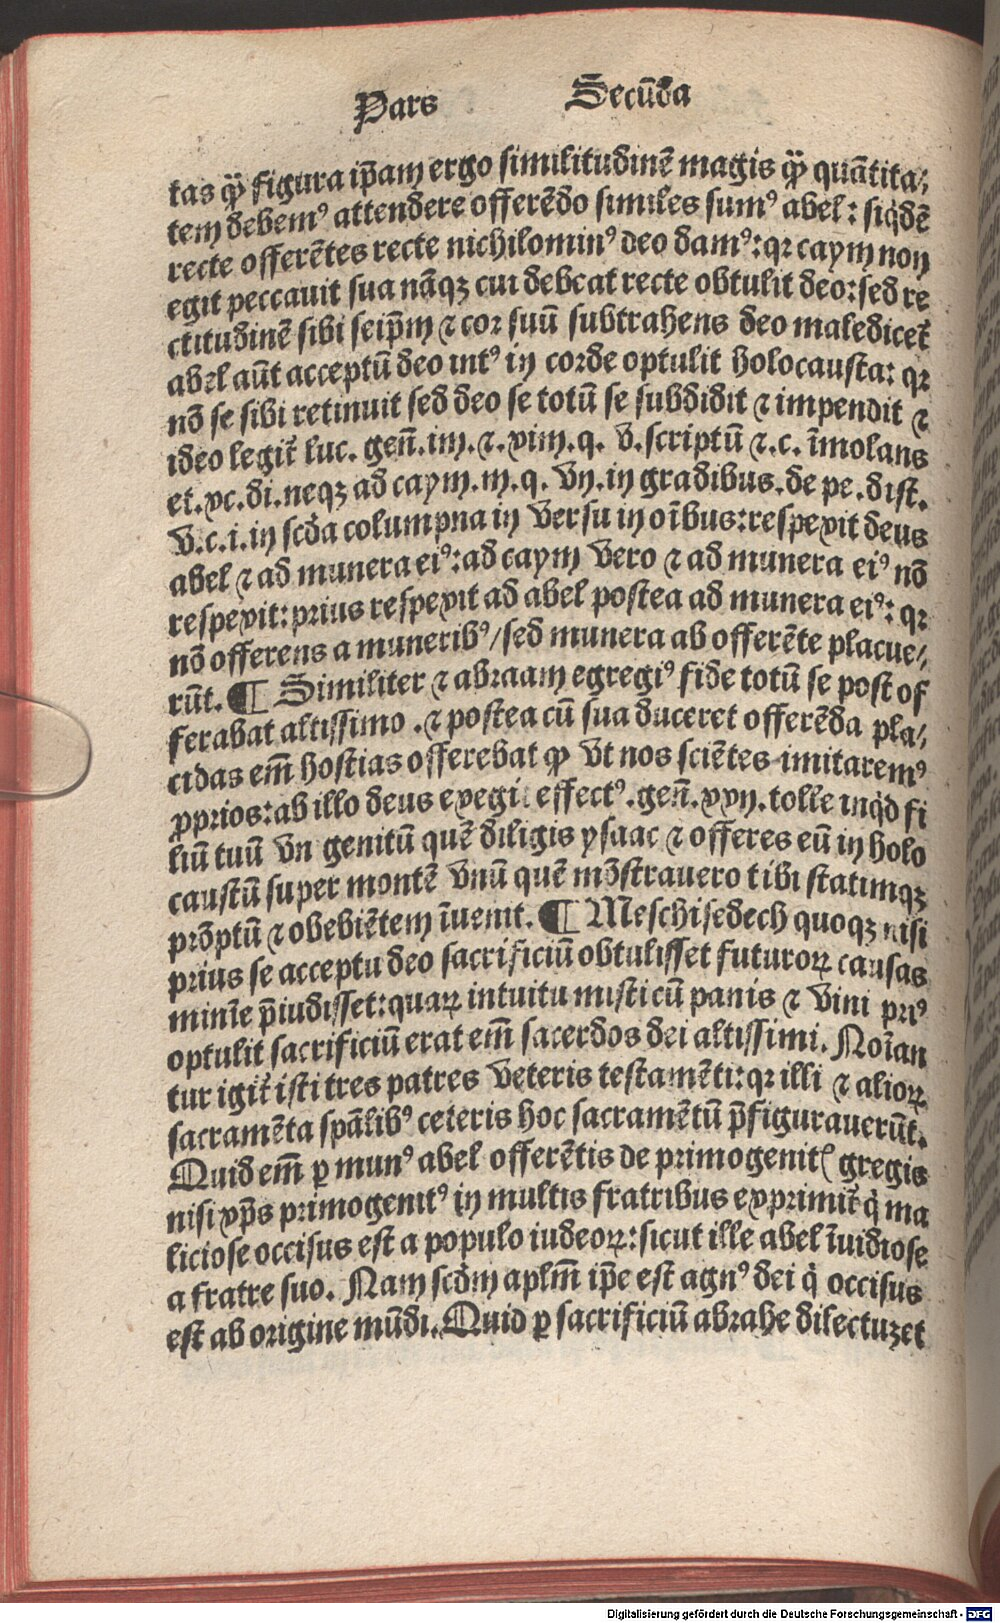 Pars Secūda
tas q̄ȝ figura ip̄am ergo similitudinē magis q̄ȝ quātita⸗
tem debemꝰ attendere offerēdo similes sumꝰ abel: siq̇dē
recte offerētes recte nichilominꝰ deo damꝰ: qꝛ caym non
egit peccauit sua nāqȝ cui debeat recte obtulit deo: sed re
ctitudinē sibi seip̄m ⁊ cor suū subtrahens deo maledicet̄
abel aūt acceptū deo intꝰ in corde optulit holocausta: qꝛ
nō se sibi retinuit sed deo se totū se subdidit ⁊ impendit ⁊
ideo legit̄ luc. gen̄. iiij. ⁊. xiiij. q. v. scriptū ⁊. c. īmolans
et. xc. di. neqȝ ad caym. iij. q. vij. in gradibus. de pe. dist.
v. c. i. in scd̄a columpna in versu in oībus: respexit deus
abel ⁊ ad munera eiꝰ: ad caym vero ⁊ ad munera eiꝰ nō
respexit: prius respexit ad abel postea ad munera eiꝰ: qꝛ
nō offerens a muneribꝰ/ sed munera ab offerēte placue⸗
rūt. ¶ Similiter ⁊ abraam egregiꝰ fide totū se post of
ferabat altissimo. ⁊ postea cū sua duceret offerēda pla⸗
cidas em̄ hostias offerebat ꝙ vt nos sciētes imitaremꝰ
ꝓprios: ab illo deus exegit effectꝰ. gen̄. xxij. tolle inq̇d fi
liū tuū vn genitū quē diligis ysaac ⁊ offeres eū in holo
caustū super montē vnū quē mōstrauero tibi statimqȝ
prōptū ⁊ obebiētem īuenit. ¶ Melchisedech quoqȝ nisi
prius se acceptu deo sacrificiū obtulisset futuroꝝ causas
minīe p̄iudisset: quaꝝ intuitu misticū panis ⁊ vini priꝰ
optulit sacrificiū erat em̄ sacerdos dei altissimi. Noīan
tur igit̄ isti tres patres veteris testamēti: qꝛ illi ⁊ alioꝝ
sacramēta spālibꝰ ceteris hoc sacramētū p̄figurauerūt.
Quid em̄ ꝑ munꝰ abel offerētis de primogenitꝭ gregis
nisi xp̄s primogenitꝰ in multis fratribus exprimit̄ q̇ ma
liciose occisus est a populo iudeoꝝ: sicut ille abel īuidiose
a fratre suo. Nam scd̄m apl̄m ip̄e est agnꝰ dei q̇ occisus
est ab origine mūdi. Quid ꝑ sacrificiū abrahe dilectuȝ et
Digitalisierung gefördert durch die Deutsche Forschungsgemeinschaft - DFG